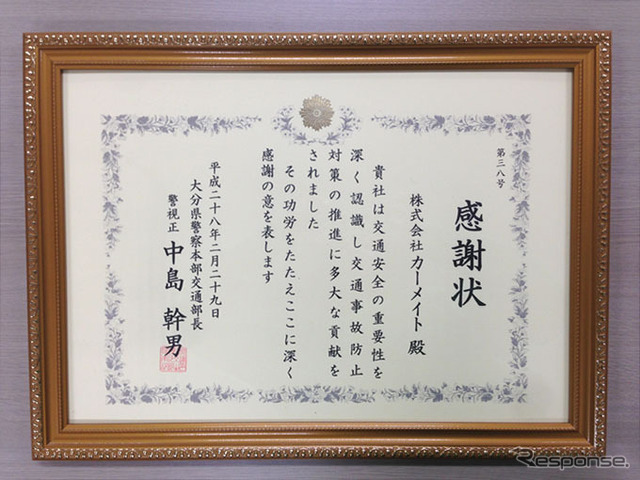 第三八号
感謝状
株式会社カーメイト 殿
貴社は交通安全の重要性を
深く認識し交通事故防止
対策の推進に多大な貢献を
されました
その功労をたたえここに深く
感謝の意を表します
平成二十八年二月二十九日
大分県警察本部交通部長
警視正 中島 幹男
Response.